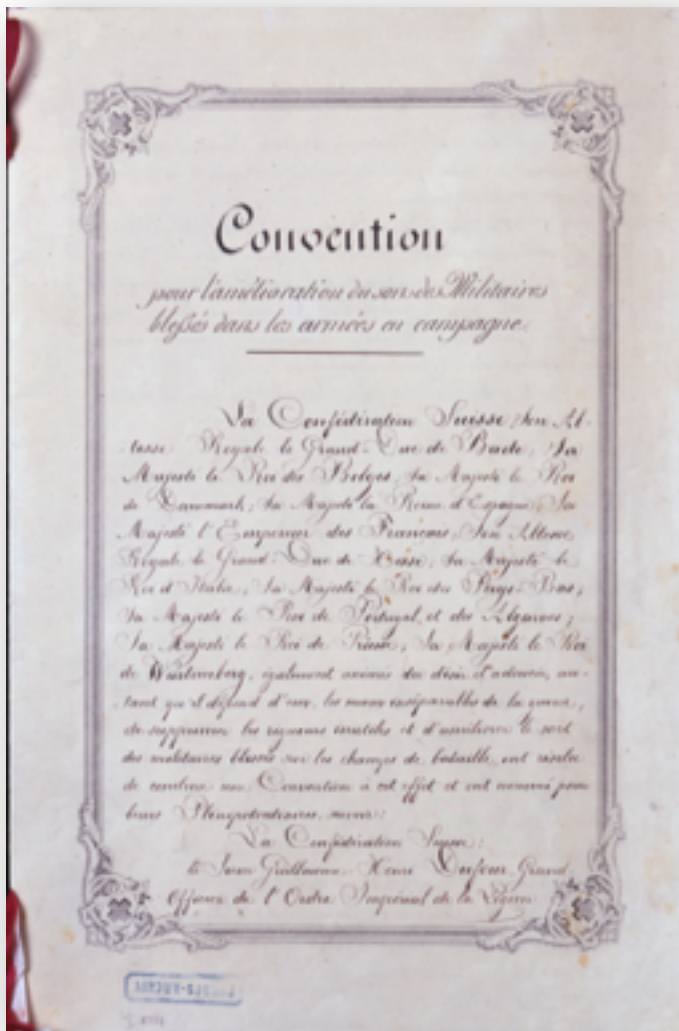 Convention
pour l'amélioration du sort des Militaires
blessés dans les armées en campagne.
La Confédération Suisse, Son Al-
tesse Royale le Grand-Duc de Bade, Sa
Majesté le Roi des Belges, Sa Majesté le Roi
de Danemark, Sa Majesté la Reine d'Espagne, Sa
Majesté l'Empereur des Français, Son Altesse
Royale le Grand-Duc de Hesse, Sa Majesté le
Roi d'Italie, Sa Majesté le Roi des Pays-Bas,
Sa Majesté le Roi de Portugal et des Algarves,
Sa Majesté le Roi de Prusse, Sa Majesté le Roi
de Würtemberg, également animés du désir d'adoucir, au-
tant que il dépend d'eux, les maux inséparables de la guerre,
de supprimer les rigueurs inutiles et d'améliorer le sort
des militaires blessés sur les champs de bataille, ont résolu
de conclure une Convention à cet effet et ont nommé pour
leurs Plénipotentiaires, savoir:
La Confédération Suisse:
le Sieur Guillaume-Henri Dufour, Grand
Officier de l'Ordre Impérial de la Légion